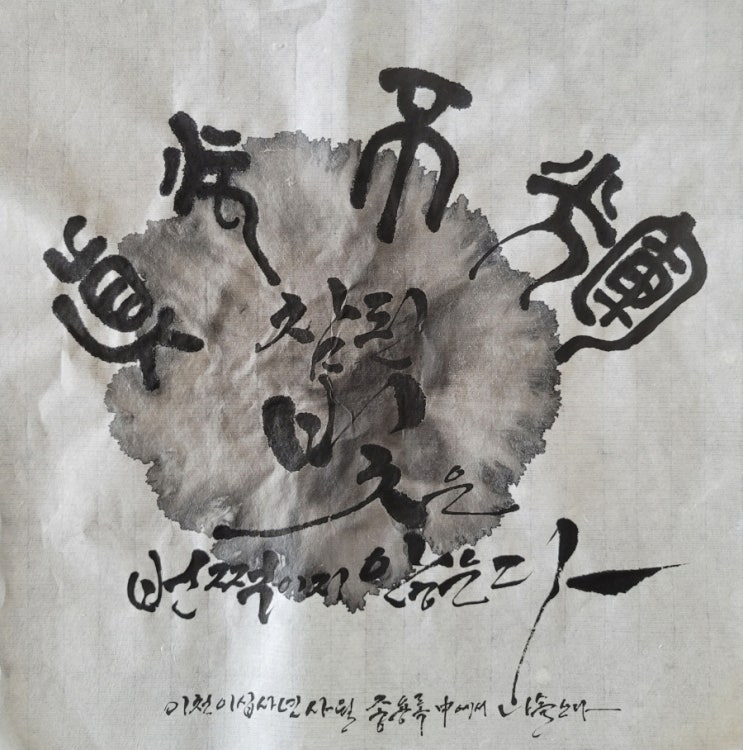 眞光不輝
참된
빛은
번쩍이지 않는다
이천이십사년 사월 종용록 中에서 쓰다